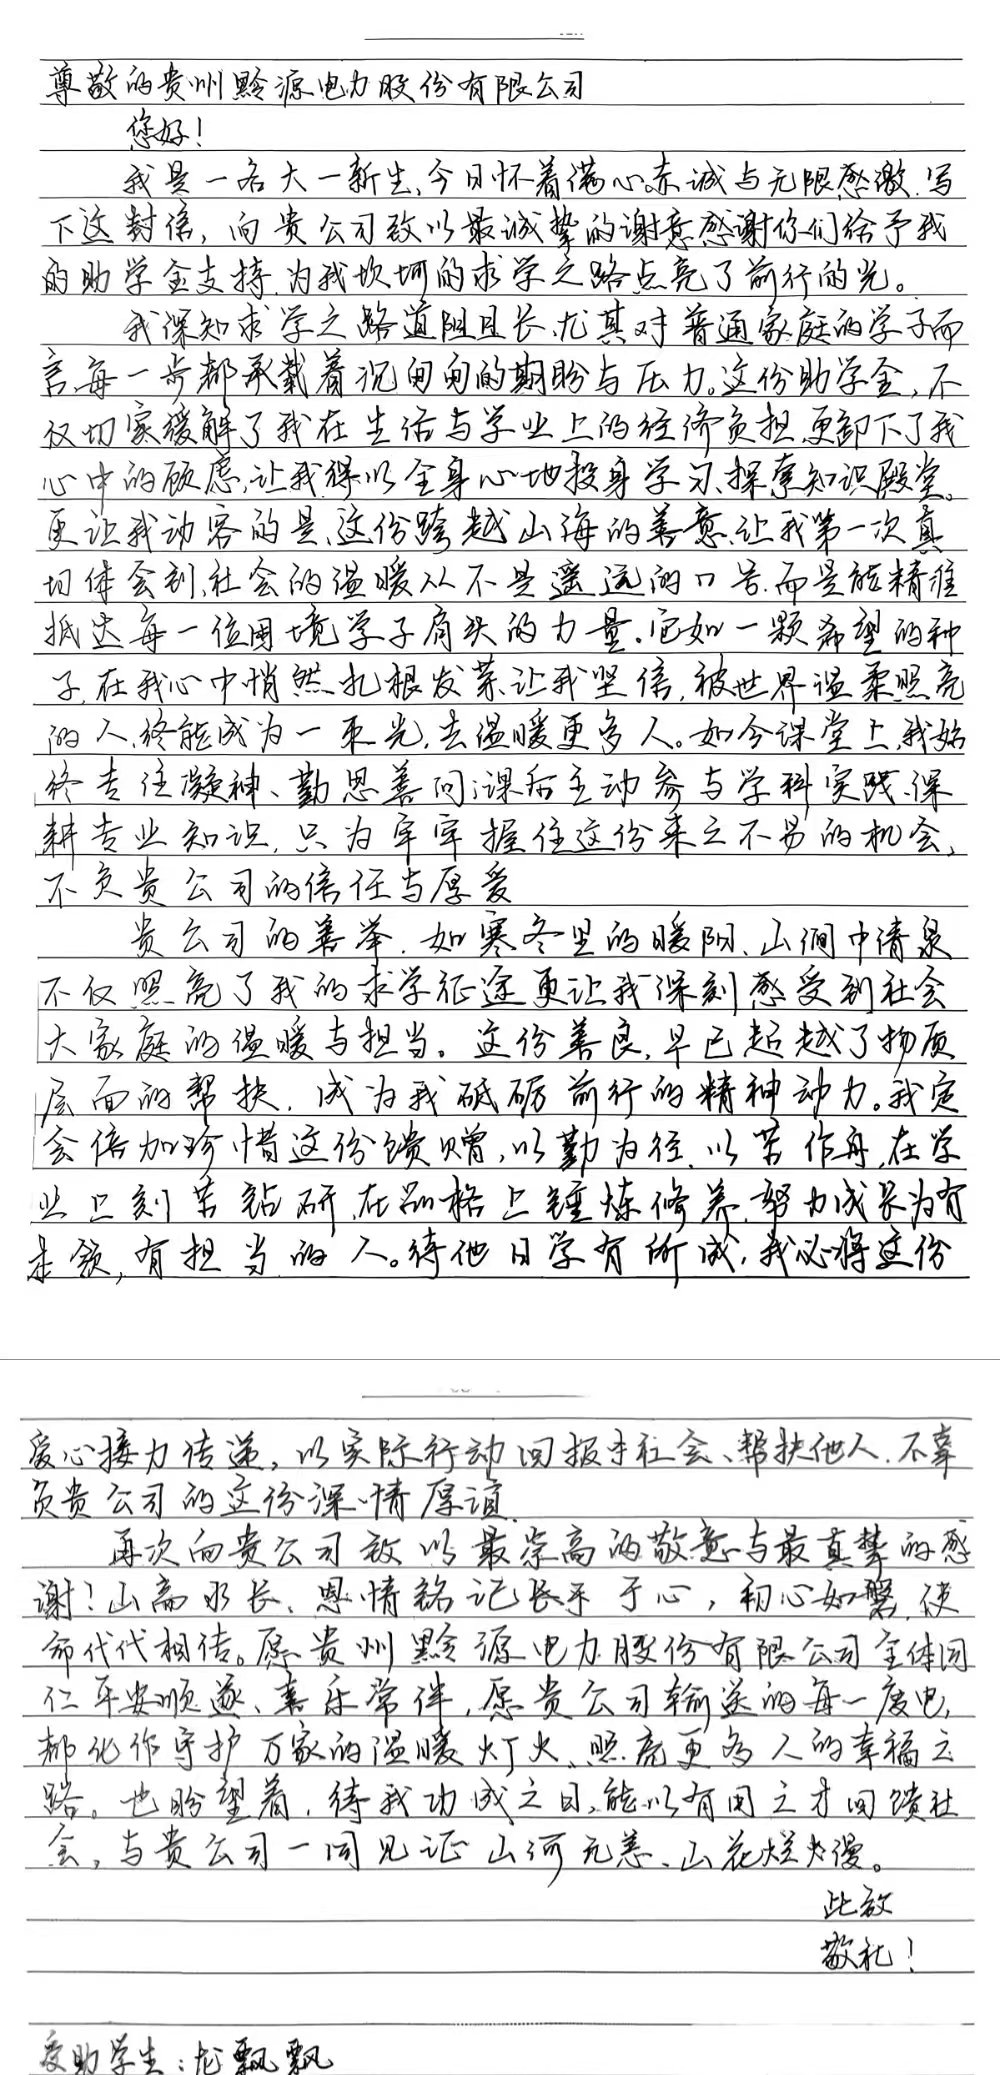 尊敬的贵州黔源电力股份有限公司
您好！
我是一名大一新生,今日怀着满心赤诚与无限感激,写
下这封信，向贵公司致以最诚挚的谢意感谢你们给予我
的助学金支持,为我坎坷的求学之路点亮了前行的光。
我深知求学之路道阻且长,尤其对普通家庭的学子而
言,每一步都承载着沉甸甸的期盼与压力。这份助学金，不
仅切实缓解了我在生活与学业上的经济负担,更卸下了我
心中的顾虑,让我得以全身心地投身学习、探索知识殿堂。
更让我动容的是,这份跨越山海的善意,让我第一次真
切体会到,社会的温暖从不是遥远的口号,而是能精准
抵达每一位困境学子肩头的力量。它如一颗希望的种
子,在我心中悄然扎根发芽,让我坚信,被世界温柔照亮
的人,终能成为一束光,去温暖更多人。如今课堂上,我始
终专注凝神、勤思善问;课后主动参与学科实践、深
耕专业知识,只为牢牢握住这份来之不易的机会,
不负贵公司的信任与厚爱
贵公司的善举,如寒冬里的暖阳、山涧中清泉
不仅照亮了我的求学征途更让我深刻感受到社会
大家庭的温暖与担当。这份善良,早已超越了物质
层面的帮扶,成为我砥砺前行的精神动力。我定
会倍加珍惜这份馈赠,以勤为径,以苦作舟,在学
业上刻苦钻研,在品格上锤炼修养,努力成长为有
本领,有担当的人。待他日学有所成,我必将这份
爱心接力传递，以实际行动回报于社会、帮扶他人,不辜
负贵公司的这份深情厚谊.
再次向贵公司致以最崇高的敬意与最真挚的感
谢！山高水长、恩情铭记长于心，初心如磐,使
命代代相传。愿贵州黔源电力股份有限公司全体同
仁平安顺遂、喜乐常伴,愿贵公司输送的每一度电,
都化作守护万家的温暖灯火、照亮更多人的幸福之
路。也盼望着,待我功成之日,能以有用之才回馈社
会,与贵公司一同见证山河无恙、山花烂漫。
此致
敬礼！
受助学生：龙飘飘